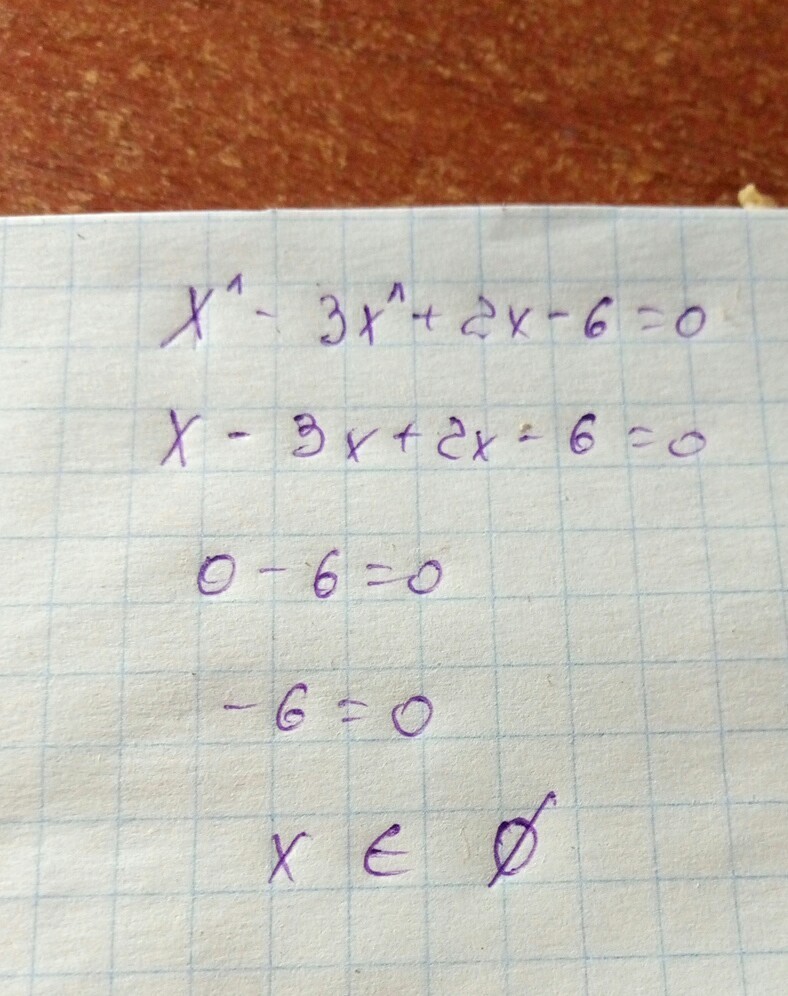 x^1 - 3x^1 + 2x - 6 = 0
x - 3x + 2x - 6 = 0
0 - 6 = 0
- 6 = 0
x ∈ ∅